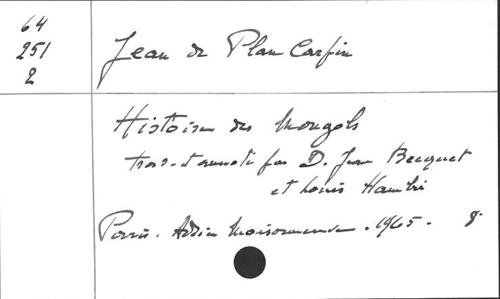 64
251
2
Jean de Plan Carpin
Histoire des Mongols
trad. et annoté par D. Jean Becquet
et Louis Hambis
Paris. Adrien Maisonneuve. 1965. 8°